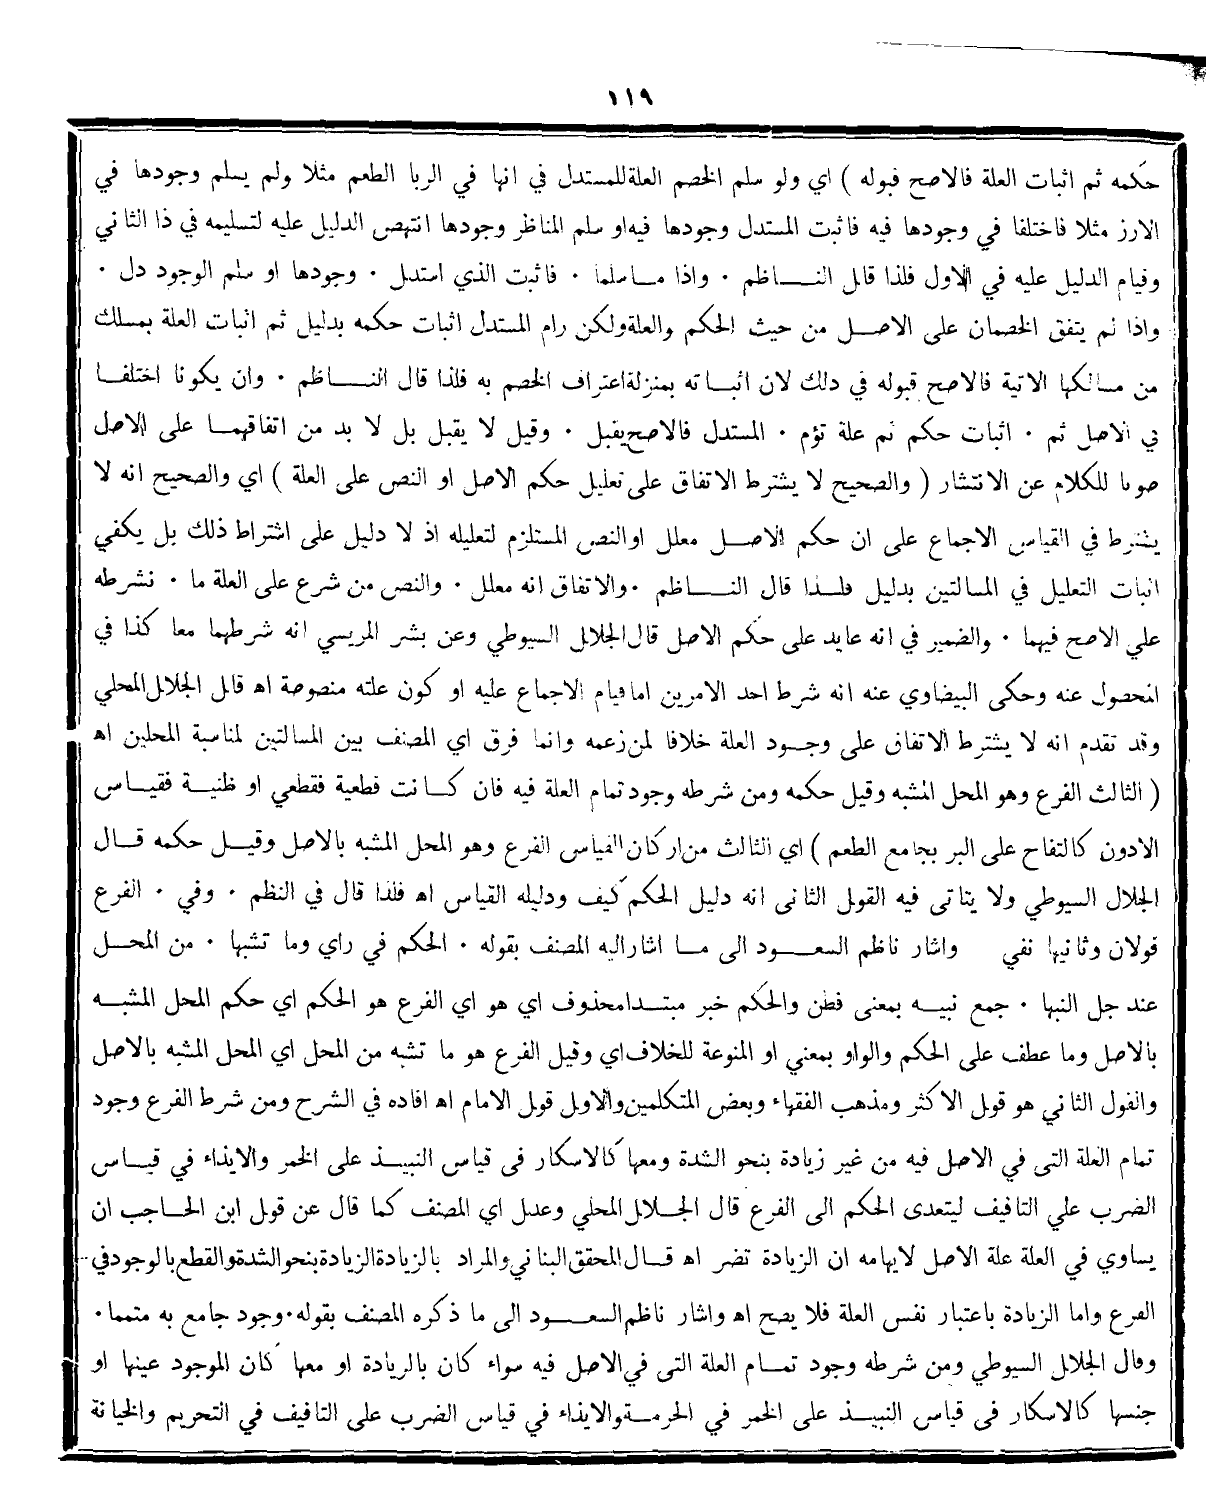 ١١٩
حكمه ثم اثبات العلة فالاصح قبوله ) اي ولو سلم الخصم العلة للمستدل في انها في الربا الطعم مثلا ولم يسلم وجودها في
الارز مثلا فاختلفا في وجودها فيه فاثبت المستدل وجودها فيه او سلم المناظر وجودها انتهض الدليل عليه لتسليمه في ذا الثاني
وقيام الدليل عليه في الاول فلذا قال النـــاظم ٠ واذا مـا سلما ٠ فاثبت الذي استدل ٠ وجودها او سلم الوجود دل ٠
واذا لم يتفق الخصمان على الاصـل من حيث الحكم والعلة ولكن رام المستدل اثبات حكمه بدليل ثم اثبات العلة بمسلك
من مسالكها الاتية فالاصح قبوله في ذلك لان اثبـاته بمنزلة اعتراف الخصم به فلذا قال النـــاظم ٠ وان يكونا اختلفـا
في الاصل ثم ٠ اثبات حكم ثم علة تؤم ٠ المستدل فالاصح يقبل ٠ وقيل لا يقبل بل لا بد من اتفاقهمـا على الاصل
صونا للكلام عن الانتشار ( والصحيح لا يشترط الاتفاق على تعليل حكم الاصل او النص على العلة ) اي والصحيح انه لا
يشترط في القياس الاجماع على ان حكم الاصـل معلل او النص المستلزم لتعليله اذ لا دليل على اشتراط ذلك بل يكفي
اثبات التعليل في المسالتين بدليل فلـذا قال النـــاظم ٠ والاتفاق انه معلل ٠ والنص من شرع على العلة ما ٠ نشرطه
علي الاصح فيهما ٠ والضمير في انه عايد على حكم الاصل قال الجلال السيوطي وعن بشر المريسي انه شرطهما معا كذا في
المحصول عنه وحكى البيضاوي عنه انه شرط احد الامرين اما قيام الاجماع عليه او كون علته منصوصة اه قال الجلال المحلي
وقد تقدم انه لا يشترط الاتفاق على وجـود العلة خلافا لمن زعمه وانما فرق اي المصنف بين المسالتين لمناسبة المحلين اه
( الثالث الفرع وهو المحل المشبه وقيل حكمه ومن شرطه وجود تمام العلة فيه فان كـانت قطعية فقطعي او ظنيـة فقيـاس
الادون كالتفاح على البر بجامع الطعم ) اي الثالث من اركان القياس الفرع وهو المحل المشبه بالاصل وقيـل حكمه قـال
الجلال السيوطي ولا يتاتى فيه القول الثانى انه دليل الحكم كيف ودليله القياس اه فلذا قال في النظم ٠ وفي ٠ الفرع
قولان وثانيها نفي واشار ناظم السعـــود الى مـا اشار اليه المصنف بقوله ٠ الحكم في راي وما تشبها ٠ من المحـل
عند جل النبها ٠ جمع نبيـه بمعنى فطن والحكم خبر مبتـدا محذوف اي هو اي الفرع هو الحكم اي حكم المحل المشبـه
بالاصل وما عطف على الحكم والواو بمعني او المنوعة للخلاف اي وقيل الفرع هو ما تشبه من المحل اي المحل المشبه بالاصل
والقول الثاني هو قول الاكثر ومذهب الفقهاء وبعض المتكلمين والاول قول الامام اه افاده في الشرح ومن شرط الفرع وجود
تمام العلة التى في الاصل فيه من غير زيادة بنحو الشدة ومعها كالاسكار فى قياس النبيـذ على الخمر والايذاء في قيـاس
الضرب علي التافيف ليتعدى الحكم الى الفرع قال الجـلال المحلي وعدل اي المصنف كما قال عن قول ابن الحـاجب ان
يساوي في العلة علة الاصل لايهامه ان الزيادة تضر اه قـال المحقق البناني والمراد بالزيادة الزيادة بنحو الشدة والقطع بالوجود في
الفرع واما الزيادة باعتبار نفس العلة فلا يصح اه واشار ناظم السعـــود الى ما ذكره المصنف بقوله ٠ وجود جامع به متمما ٠
وقال الجلال السيوطي ومن شرطه وجود تمـام العلة التى في الاصل فيه سواء كان بالزيادة او معها كان الموجود عينها او
جنسها كالاسكار فى قياس النبيـذ على الخمر في الحرمـة والايذاء في قياس الضرب على التافيف في التحريم والخيانة